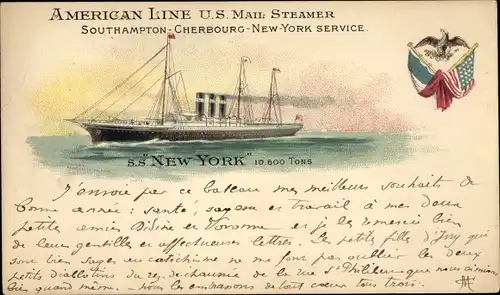 AMERICAN LINE U.S. MAIL STEAMER
SOUTHAMPTON-CHERBOURG-NEW-YORK SERVICE.
S.S. "NEW YORK" 10.800 TONS
J'envoie par ce bateau mes meilleurs souhaits de
bonne année: santé, et travail à mes deux
petites amies et et je les remercie bien
de leurs gentilles et affectueuses lettres. Les petites filles d'Ivry qui
sont bien sages au catéchisme ne me font pas oublier les deux
petits du rez-de-chaussée de la rue St que nous aimons
bien quand même. - nous les embrassons de tout coeur tous trois.